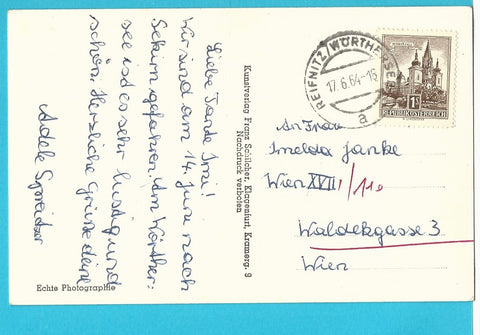 Liebe Tante Imi!
Wir sind am 14. Juni nach
Sekirn gefahren. Am Wörther-
see ist es sehr lustig und
schön. Herzliche Grüße deine
Adele Spreitzer
Echte Photographie
Kunstverlag Franz Schilcher, Klagenfurt, Kramerg. 9
Nachdruck verboten
REIFNITZ/WÖRTHERSEE
17.6.64-15
a
1S
REPUBLIK ÖSTERREICH
An Frau
Imelda Janke
Wien XVIII/110
Waldekgasse 3
Wien